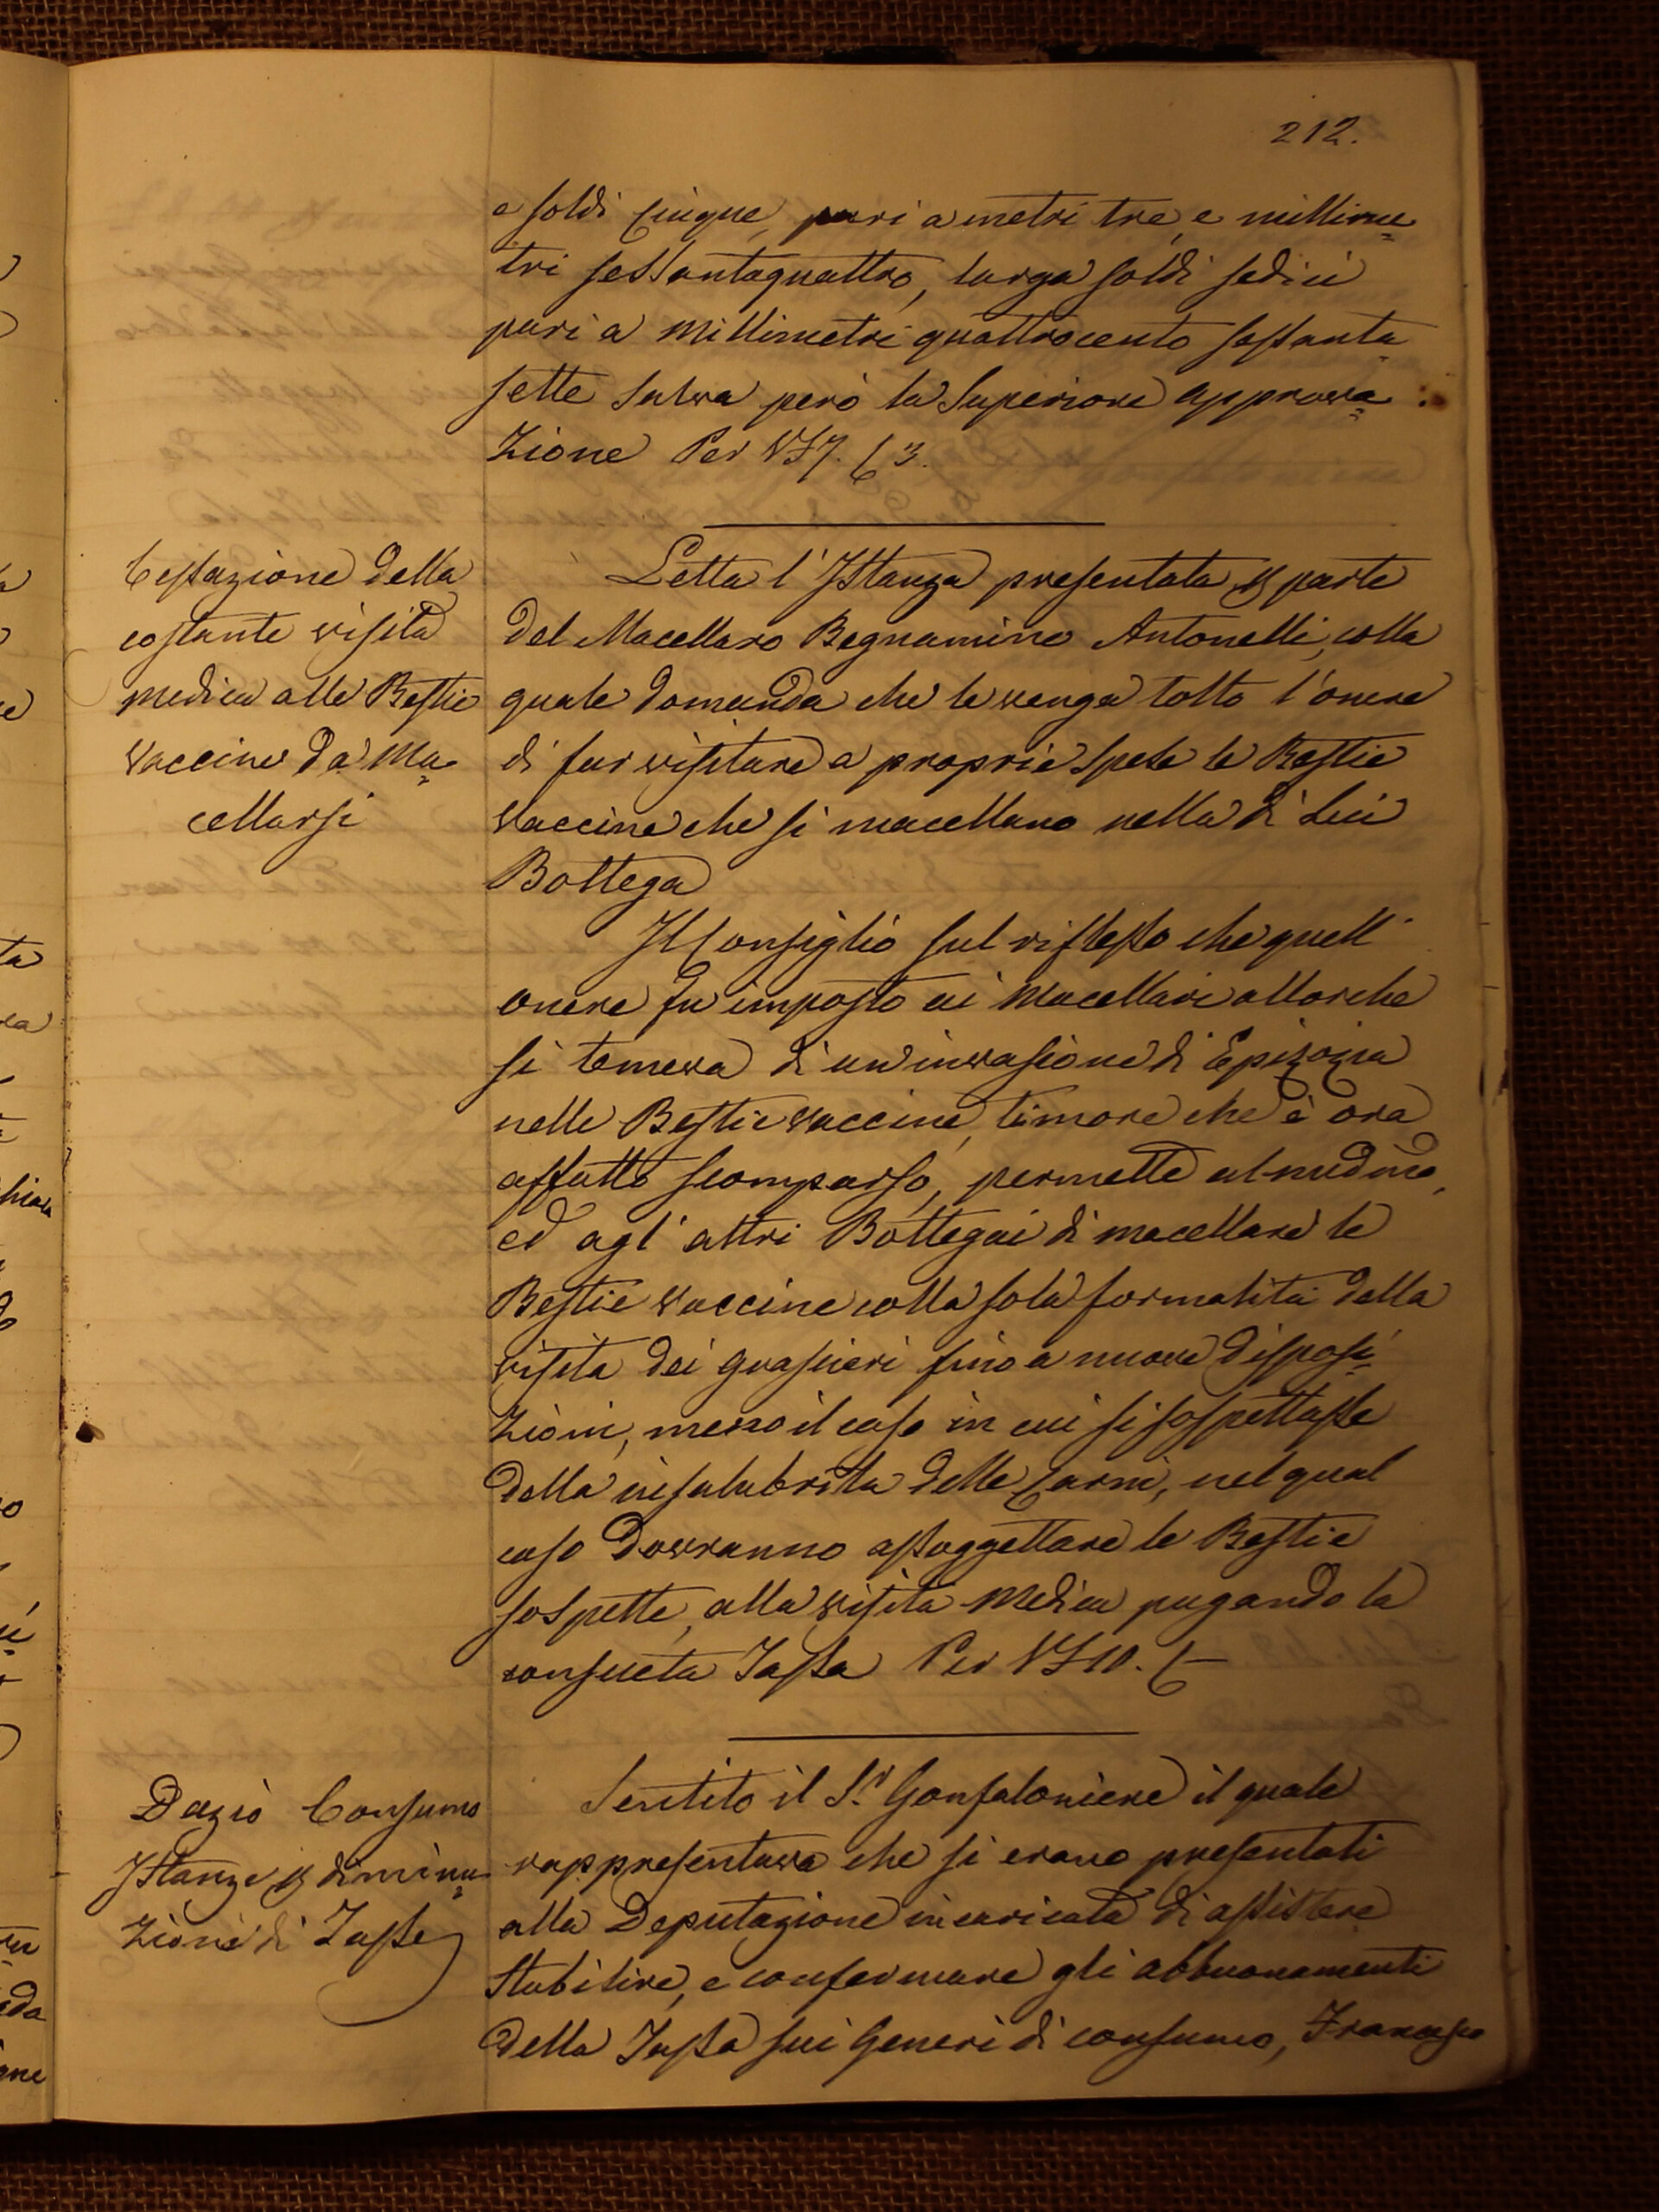 212.
e soldi Cinque, pari a metri tre, e millime=
tri sessantaquattro, larga soldi sedici
pari a Millimetri quattrocento sessanta
sette salva però la Superiore approva=
zione Per V.F 7. C 3.
Cessazione della
costante visita
medica alle Bestie
Vaccine da Ma=
cellarsi
Letta l'Istanza presentata p parte
del Macellaro Begnamino Antonelli, colla
quale domanda che le venga tolto l'onere
di far visitare a proprie spese le Bestie
Vaccine che si macellano nella di Lui
Bottega
Il Consiglio sul riflesso che quell'
onere fu imposto ai Macellari allorche
si temeva di un'invasione di Epizozia
nelle Bestie vaccine, timore che è ora
affatto scomparso, permette al medmo,
ed agl'altri Bottegai di macellare le
Bestie vaccine colla sola formalità della
visita dei Grascieri fino a nuove disposi=
zioni, meno il caso in cui si sospettasse
della insalubrità delle Carni, nel qual
caso dovranno assoggettare le Bestie
sospette, alla visita Medica pagando la
consueta Tassa Per V.F 10. C —
Dazio Consumo
Istanze p diminu=
zione di Tasse
Sentito il Sr Gonfaloniere il quale
rappresentava che si erano presentati
alla Deputazione incaricata di assistere
stabilire, e confermare gli abbuonamenti
della Tassa sui Generi di consumo, Francesco